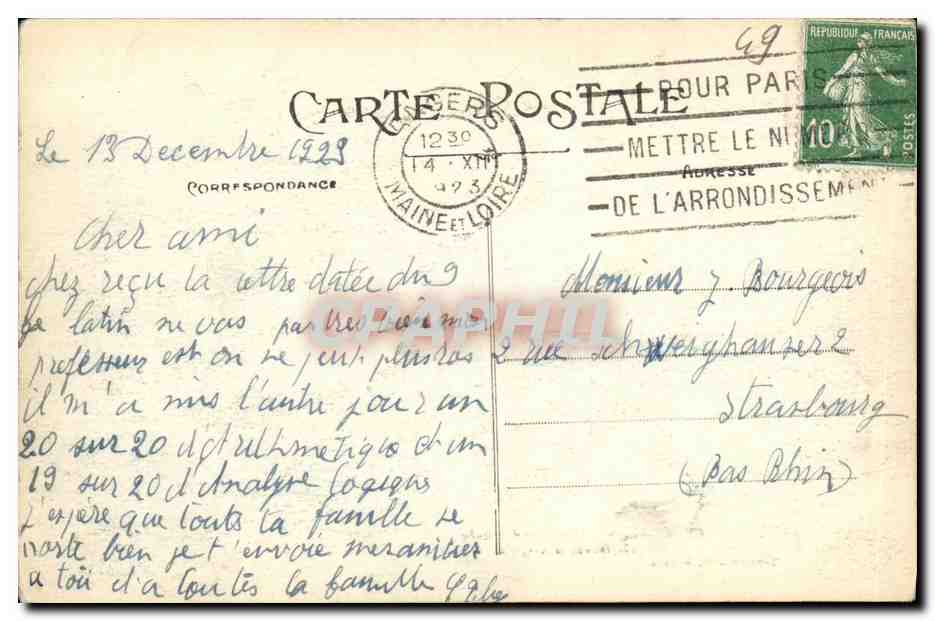 49
RÉPUBLIQUE FRANÇAISE
10
POSTES
CARTE POSTALE
ANGERS
12 30
14 · XII
1923
MAINE ET LOIRE
POUR PARIS
METTRE LE NUM
DE L'ARRONDISSEMENT
ADRESSE
CORRESPONDANCE
CPAPHIL
Le 13 Decembre 1923
Cher ami
chez reçu ta lettre datée du 9
le latin ne vas pas tres bien mon
professeur est on ne peut plus ras
il m'a mis l'autre jour un
20 sur 20 d'Arithmetique et un
19 sur 20 d'Analyse Logique
J'espère que toute ta famille se
porte bien je t'envoie mes amities
a toi et a toutes la famille
Monsieur J. Bourgeois
2 rue Schweighauser 2
Strasbourg
(Bas Rhin)